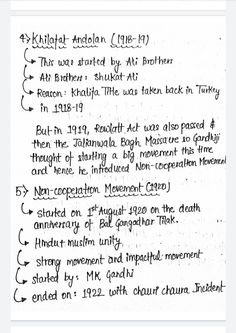 4) Khilafat Andolan (1918-19)
This was started by Ali Brothers
Ali Brothers: Shukat Ali
Reason: Khalifa Title was taken back in Turkey
in 1918-19
But in 1919, Rowlatt Act was also passed &
then the Jalianwala Bagh Massacre so Gandhiji
thought of starting a big movement this time
and hence he introduced Non-cooperation Movement
5) Non-cooperation Movement (1920)
started on 1st August 1920 on the death
anniversary of Bal Gangadhar Tilak.
Hindu muslim unity
strong movement and impactful movement
started by: MK Gandhi
ended on: 1922 with chauri chaura Incident